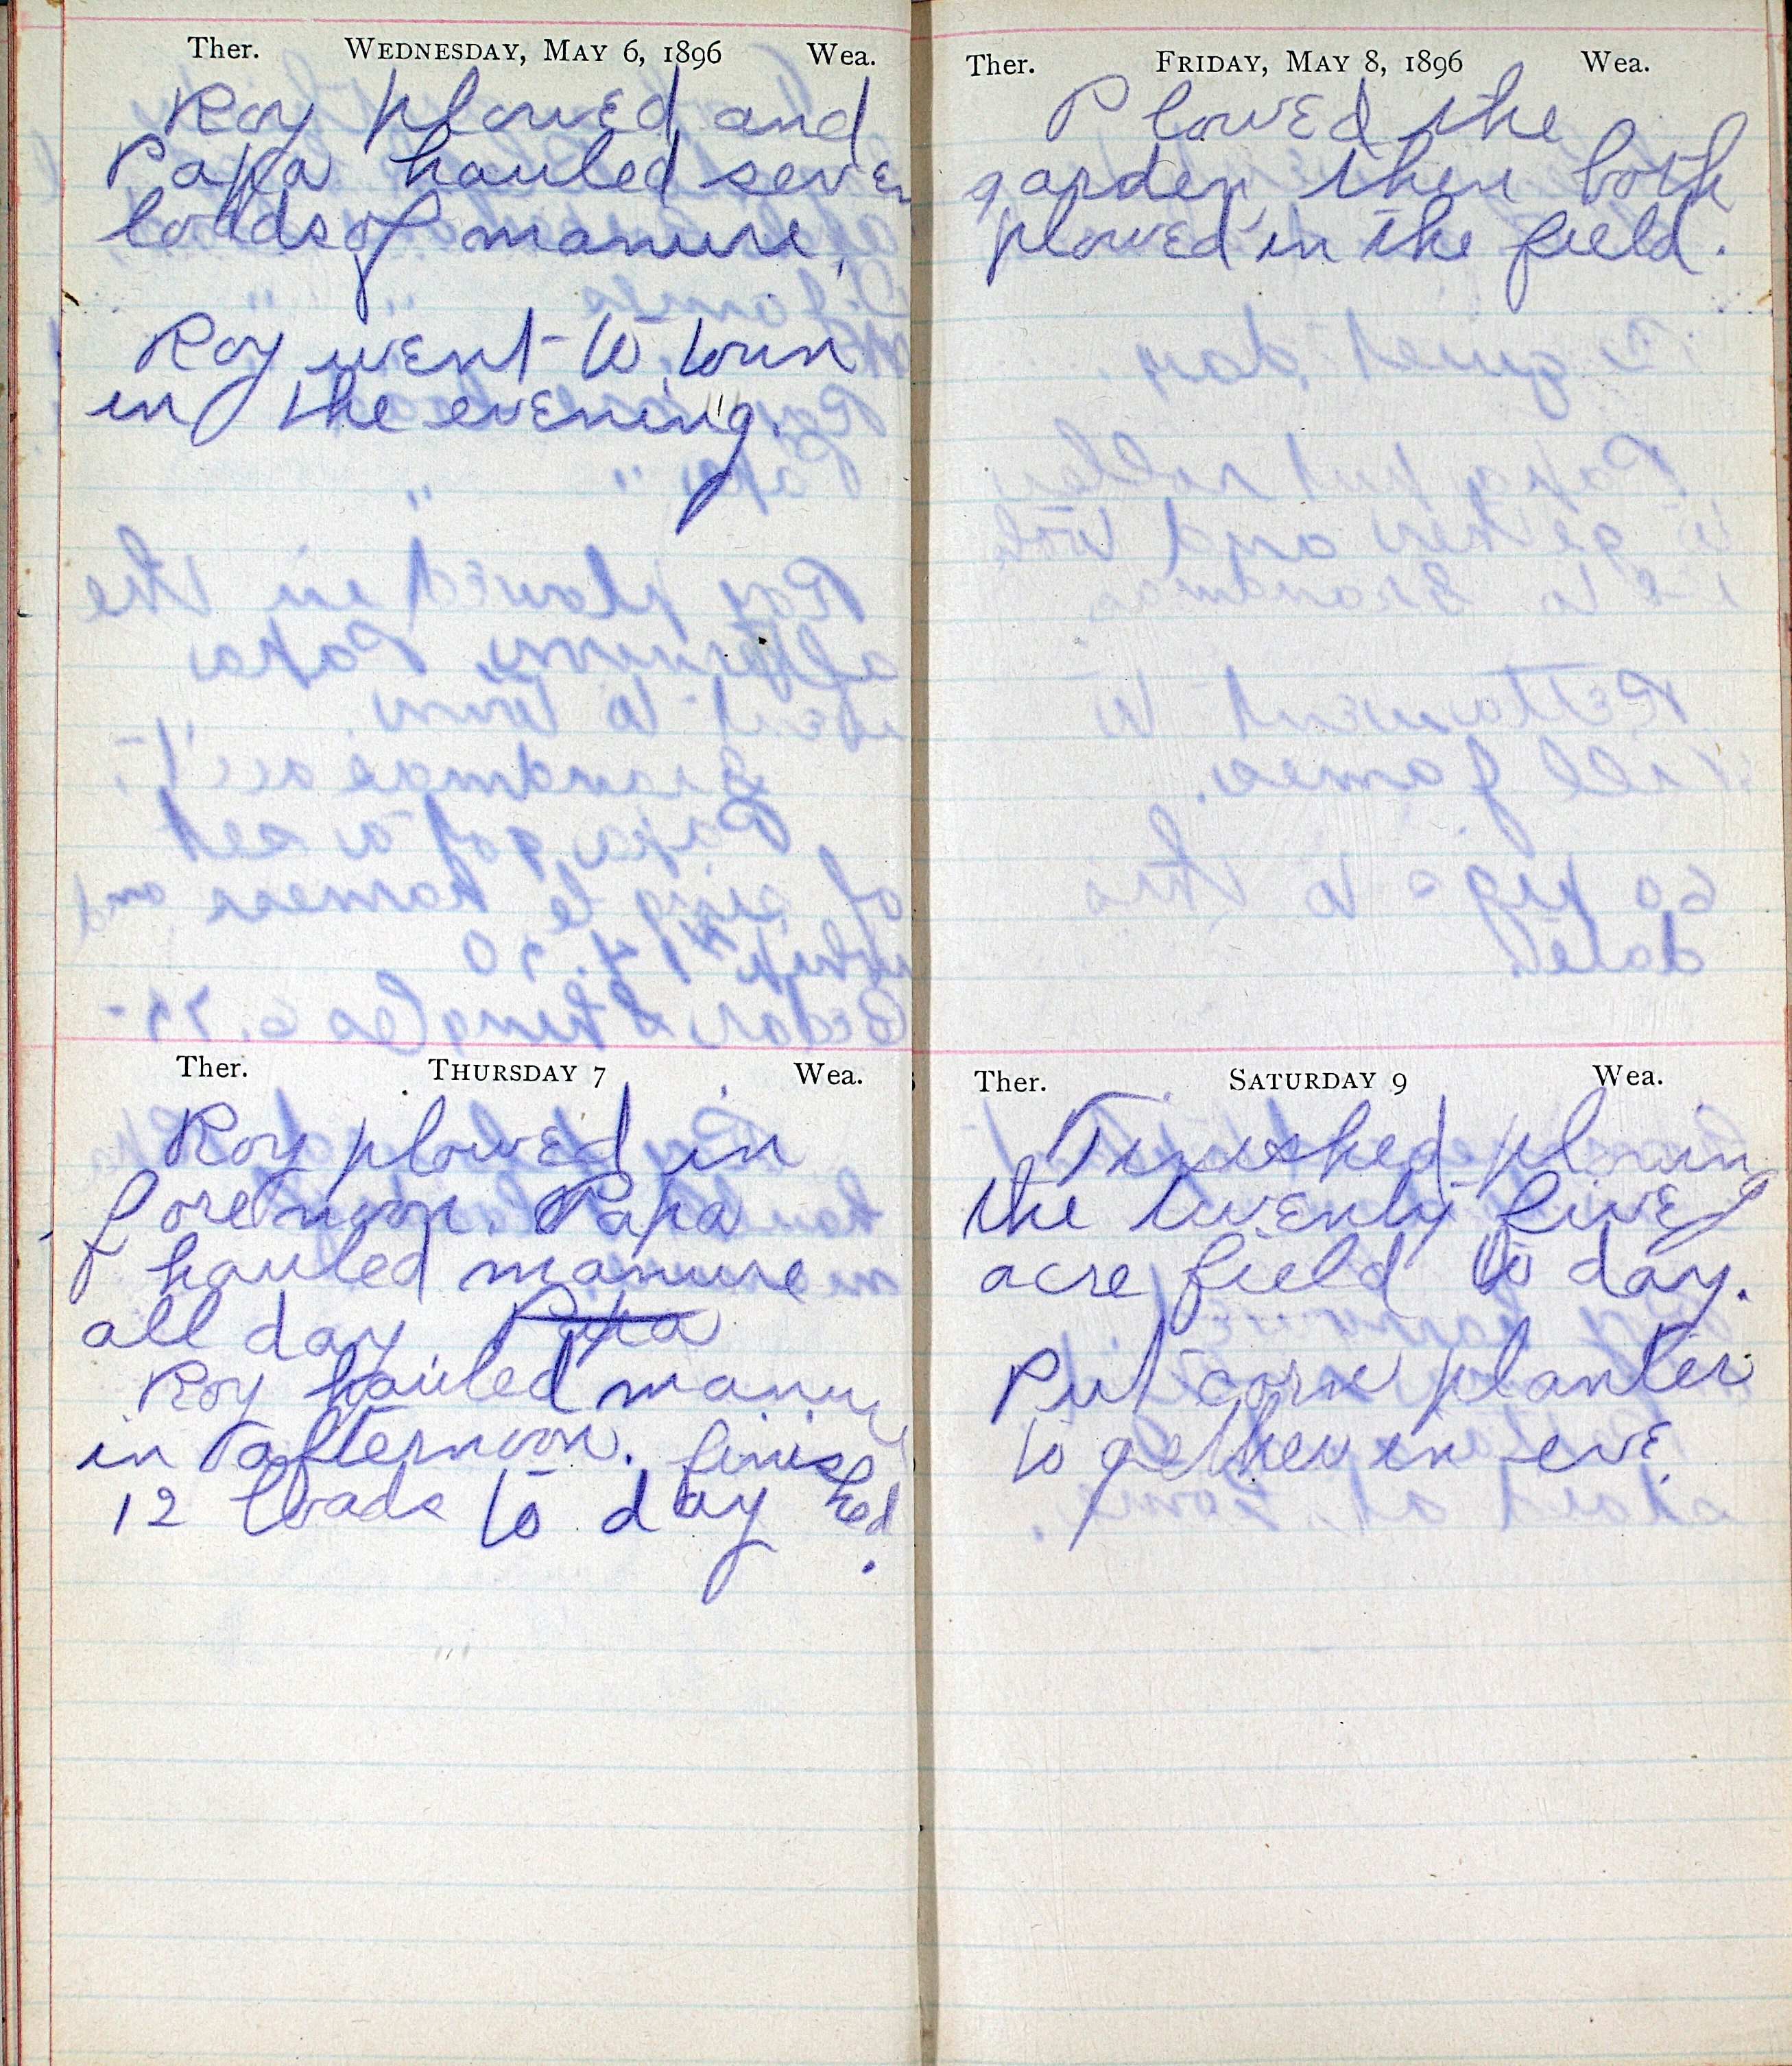 Ther. WEDNESDAY, MAY 6, 1896 Wea.
Roy plowed and
Papa hauled seven
loads of manure.
Roy went to town
in the evening.
Ther. THURSDAY 7 Wea.
Roy plowed in
forenoon. Papa
hauled manure
all day Papa
Roy hauled manure
in afternoon. finished
12 loads to day.
Ther. FRIDAY, MAY 8, 1896 Wea.
Plowed the
garden, then both
plowed in the field.
Ther. SATURDAY 9 Wea.
Finished plowin
the twenty five
acre field to day.
Put corn planter
to gether in eve.